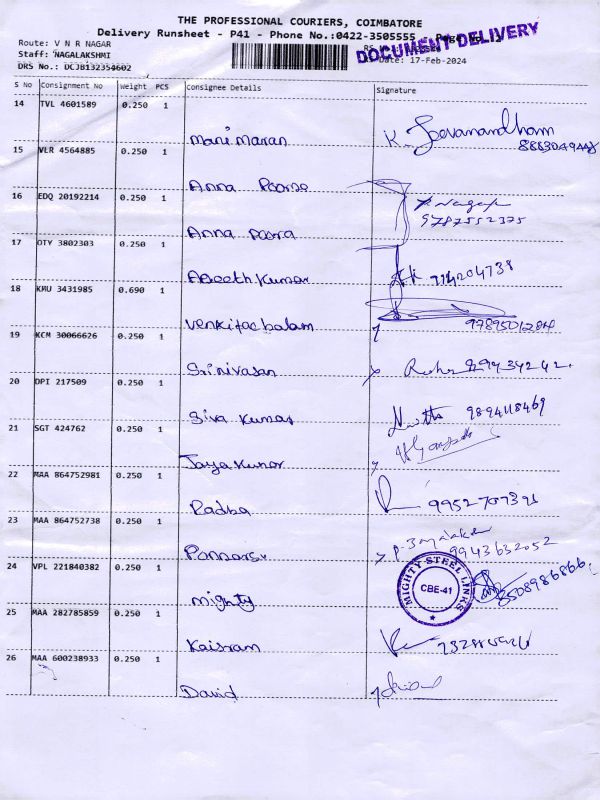 THE PROFESSIONAL COURIERS, COIMBATORE
Delivery Runsheet - P41 - Phone No.:0422-3505555
DOCUMENT DELIVERY
Route: V N R NAGAR
Staff: NAGALAKSHMI
Date: 17-Feb-2024
DRS No.: DCJB132354602
S No Consignment No Weight PCS Consignee Details Signature
14 TVL 4601589 0.250 1
Manimaran K. Jeevanandham
15 VLR 4564885 0.250 1
Anna Poorna
16 EDQ 20192214 0.250 1
9787552375
Anna Poora
17 OTY 3802303 0.250 1
Ajeeth Kumar
18 KMU 3431985 0.690 1
Venkitachalam
19 KCM 30066626 0.250 1
Srinivasan
20 DPI 217509 0.250 1
Siva Kumar 9894118469
21 SGT 424762 0.250 1
Jaya Kumar
22 MAA 864752981 0.250 1
Radha
23 MAA 864752738 0.250 1
9943632052
24 VPL 221840382 0.250 1
MIGHTY STEEL LINKS
CBE-41
Mighty
25 MAA 282785859 0.250 1
Kaisram
26 MAA 600238933 0.250 1
David